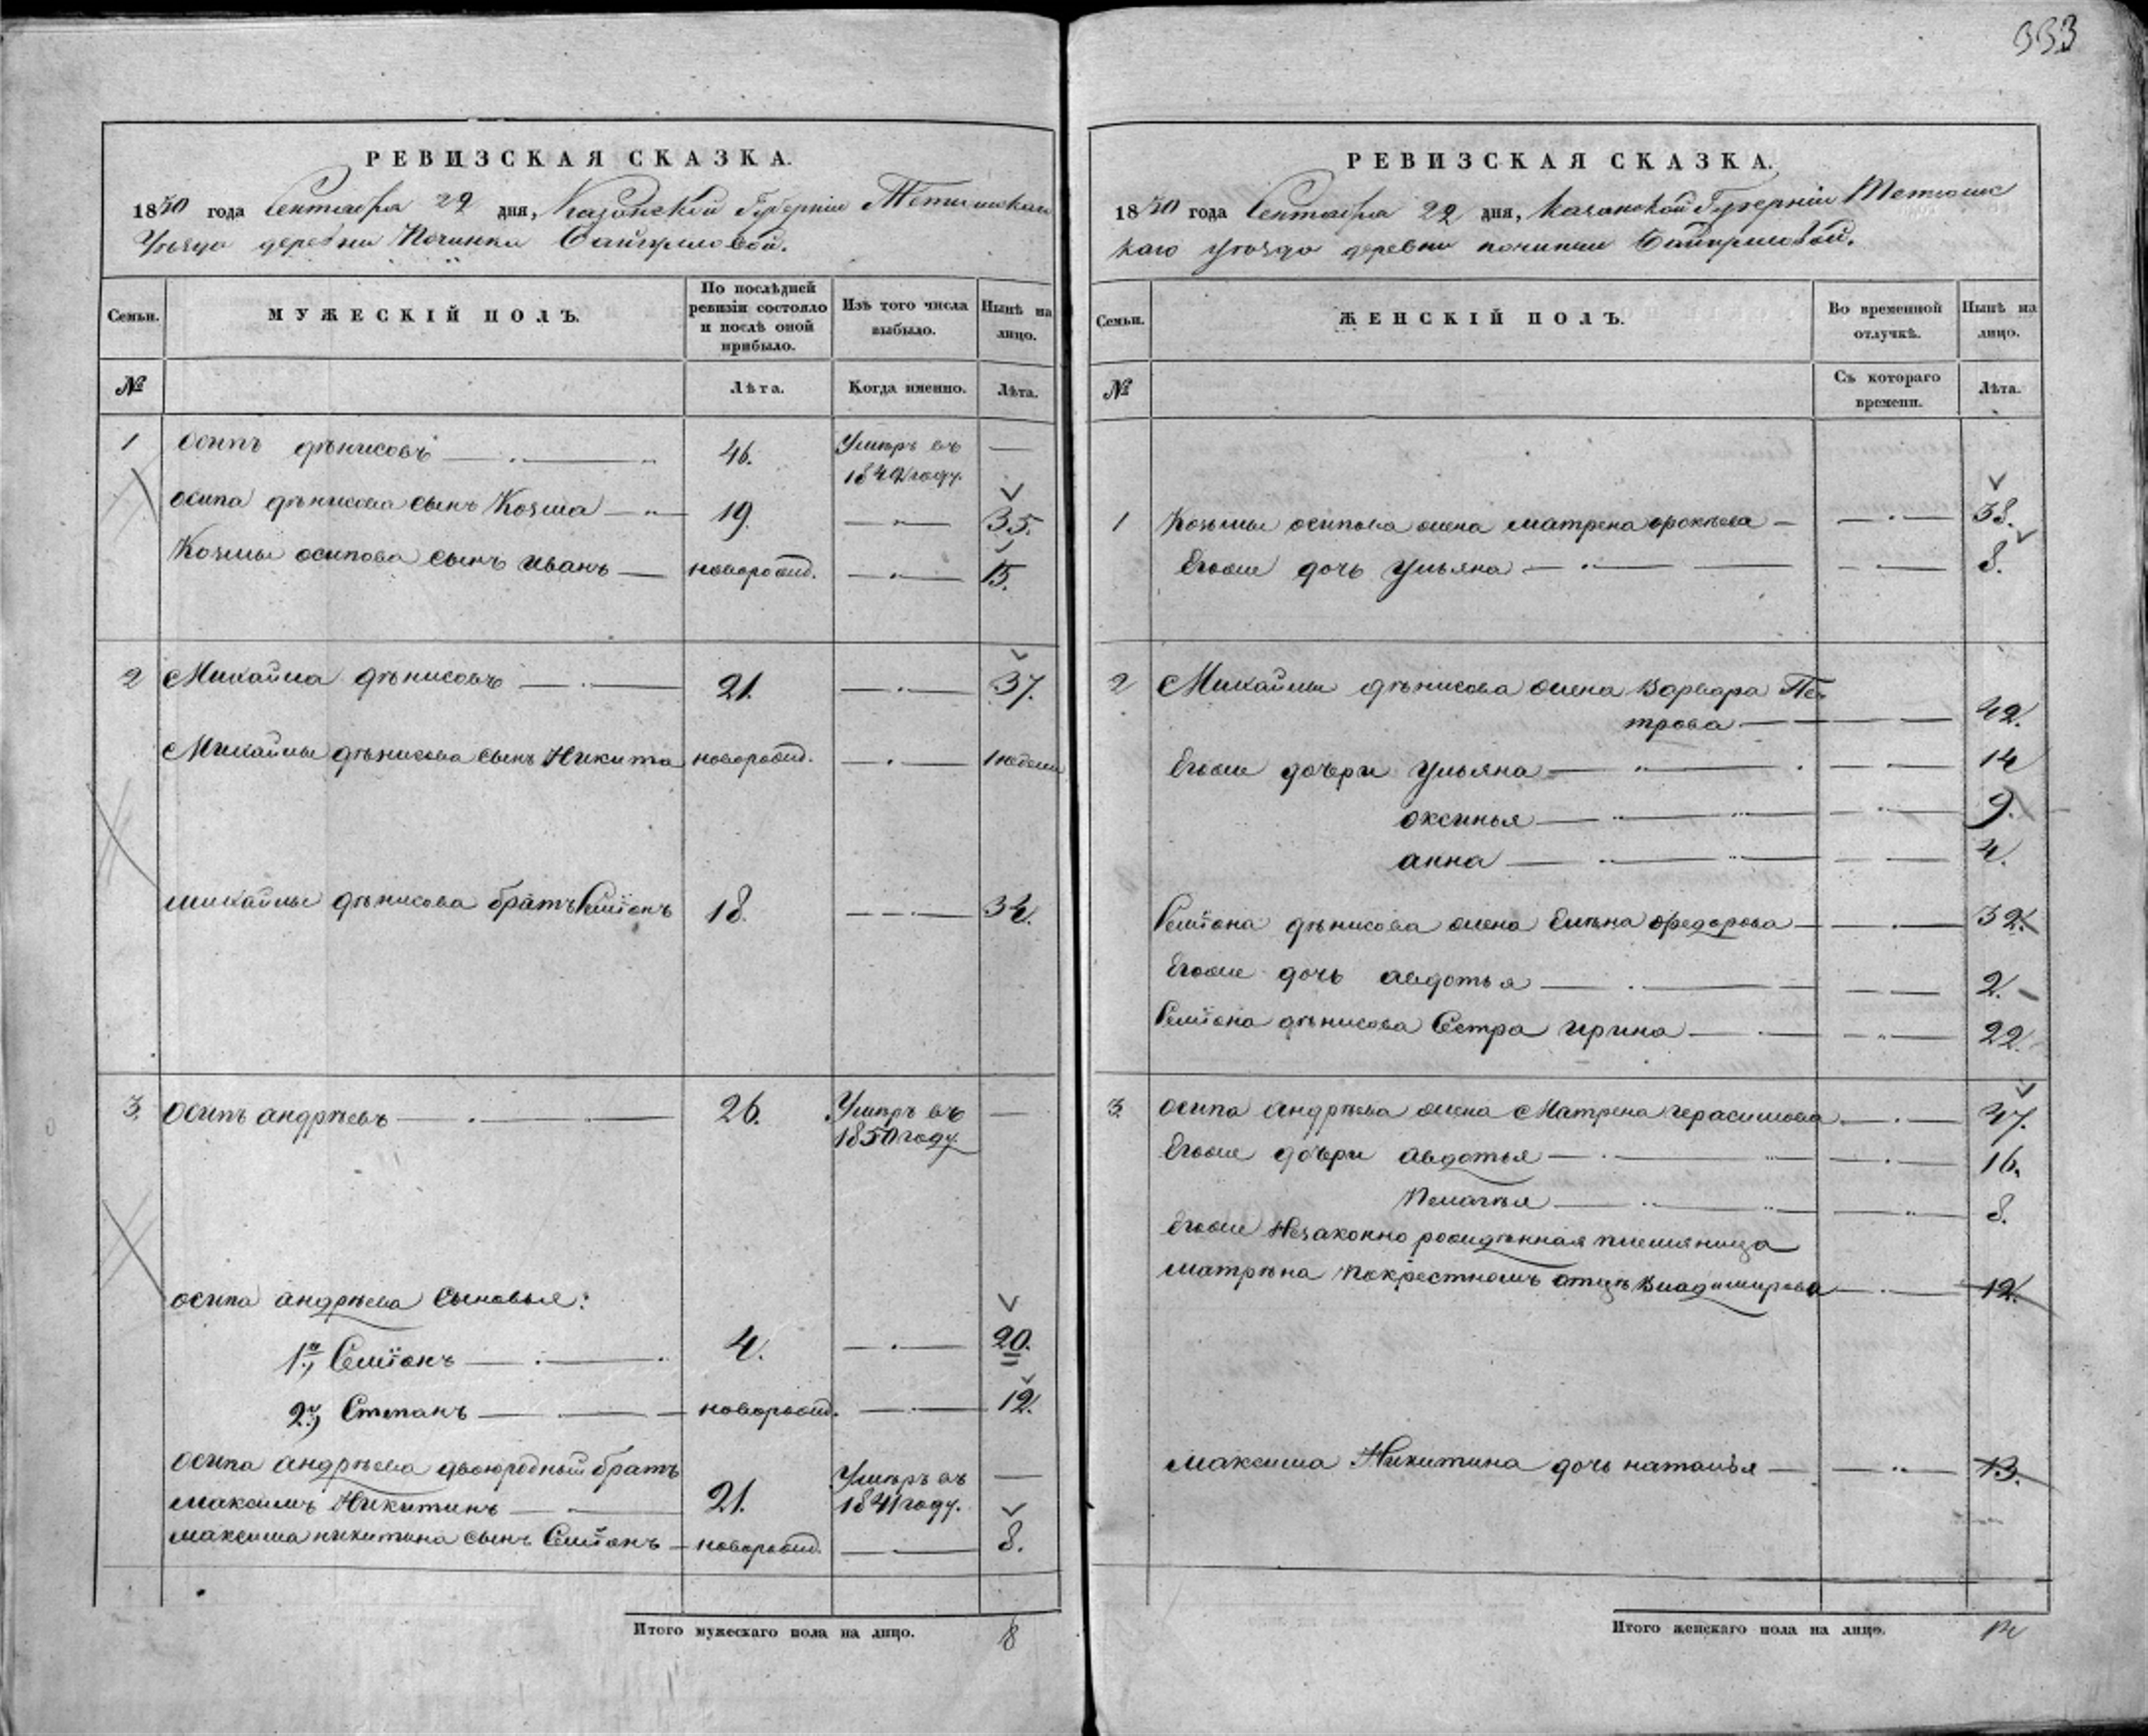 333
РЕВИЗСКАЯ СКАЗКА.
1850 года Сентября 22 дня, Казанской Губерніи Тетюшскаго
Уѣзда деревни Починки
Семьи.
МУЖЕСКІЙ ПОЛЪ.
По послѣдней ревизіи состояло и послѣ оной прибыло.
Изъ того числа выбыло.
Нынѣ на лицо.
№
Лѣта.
Когда именно.
Лѣта.
1 осипъ дѣнисовъ 46. Умѣръ въ
1840 году.
осипа дѣнисова сынъ Козма 19. 35.
Козмы осипова сынъ иванъ новорожд. 15.
2 Михайла дѣнисовъ 21. 37.
Михайлы дѣнисова сынъ Никита новорожд. 1 недели
михайлы дѣнисова братъ Семіонъ 18. 34.
3. осипъ андрѣевъ 26. Умѣръ въ
1850 году
осипа андрѣева сыновья:
1й, Семіонъ 4. 20.
2й, Степанъ новорожд. 12.
осипа андрѣева двоюродный братъ
максимъ Никитинъ 21. Умѣръ въ
1841 году.
максима никитина сынъ Семіонъ новорожд. 8.
Итого мужескаго пола на лицо. 8
РЕВИЗСКАЯ СКАЗКА.
1850 года Сентября 22 дня, Казанской Губерніи Тетюшс
каго уѣзда деревни починки
Семьи.
ЖЕНСКІЙ ПОЛЪ.
Во временной отлучкѣ.
Нынѣ на лицо.
№
Съ котораго времени.
Лѣта.
1 Козьмы осипова жена матрена 38.
Егоже дочь Ульяна 8.
2 Михайлы дѣнисова жена Варвара Пе-
трова 42.
Егоже дочери Ульяна 14
оксинья 9.
анна 4.
Семіона дѣнисова жена Елѣна Федорова 32.
Егоже дочь авдотья 2.
Семіона дѣнисова Сестра ирина 22.
3. осипа андрѣева жена Матрена герасимова 47.
Егоже дочери авдотья 16.
Пелагѣя 8.
Егоже Незаконно рожидѣнная племяница
матрѣна покрестномъ отцѣ владимирова 12.
максима Никитина дочь наталья 13.
Итого женскаго пола на лицо.